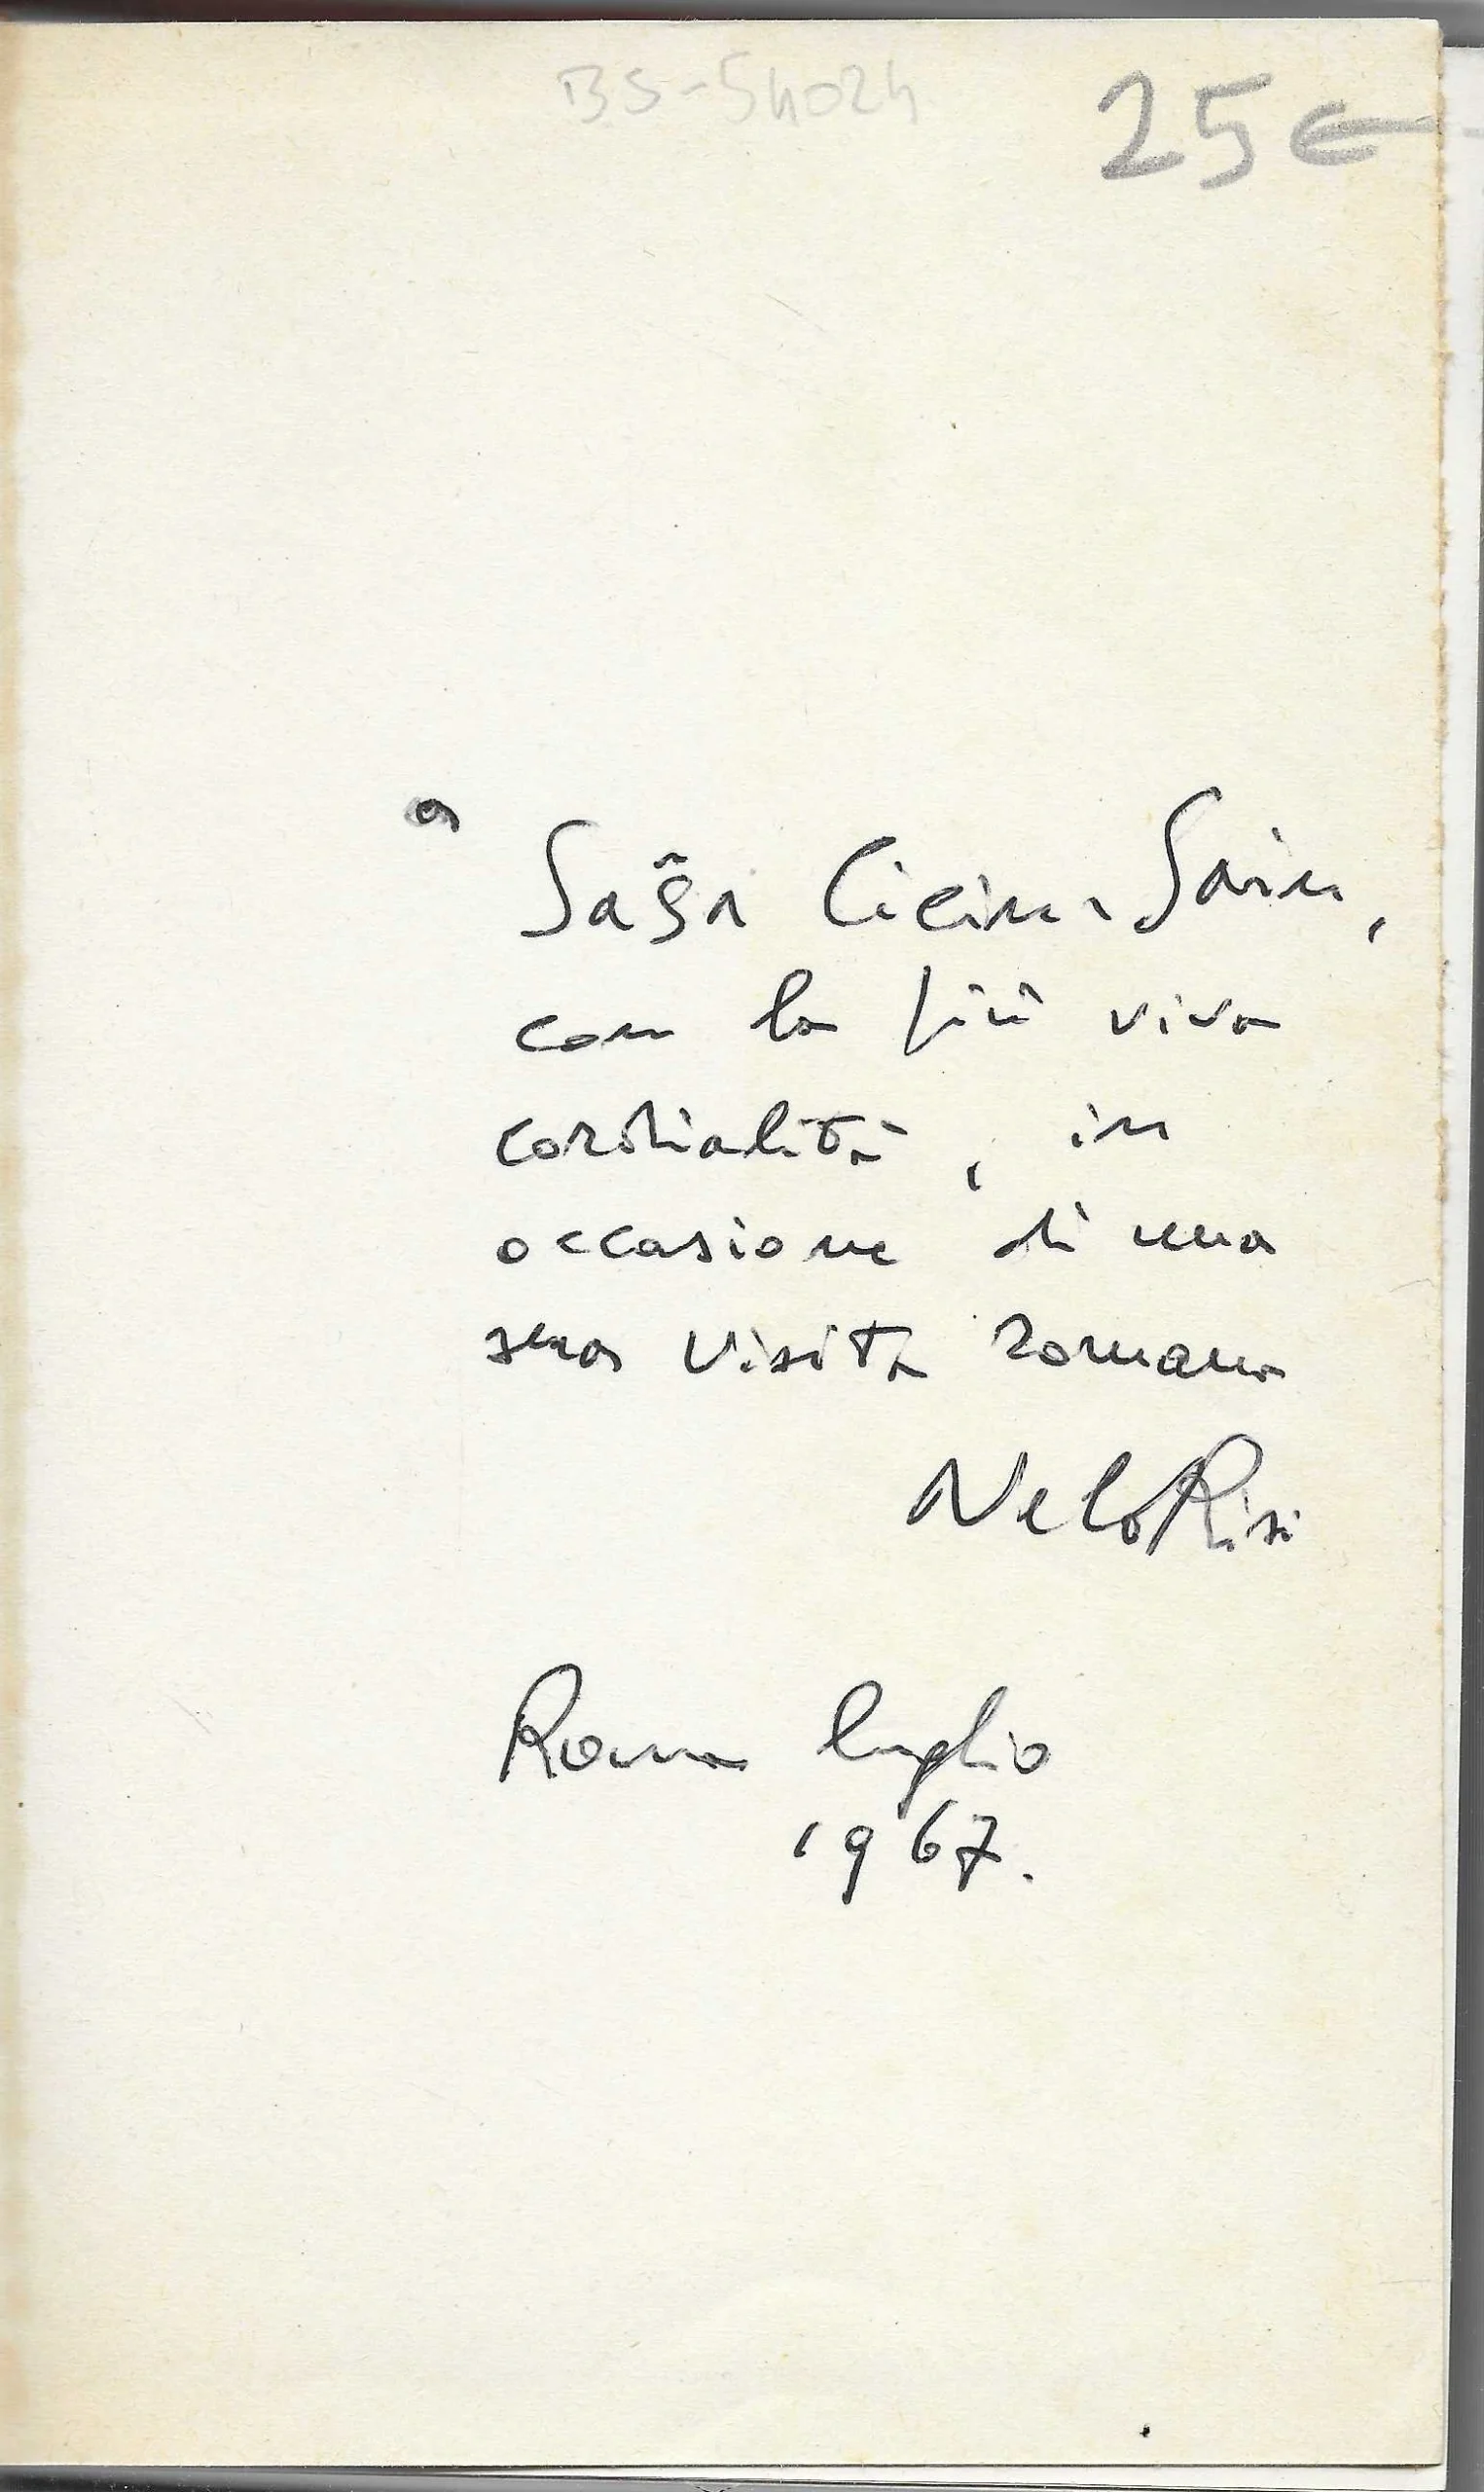 BS-54024
25 €
a
Saša Cicin-Sain,
con la più viva
cordialità, in
occasione di una
sua visita romana
Nelo Risi
Roma luglio
1967.